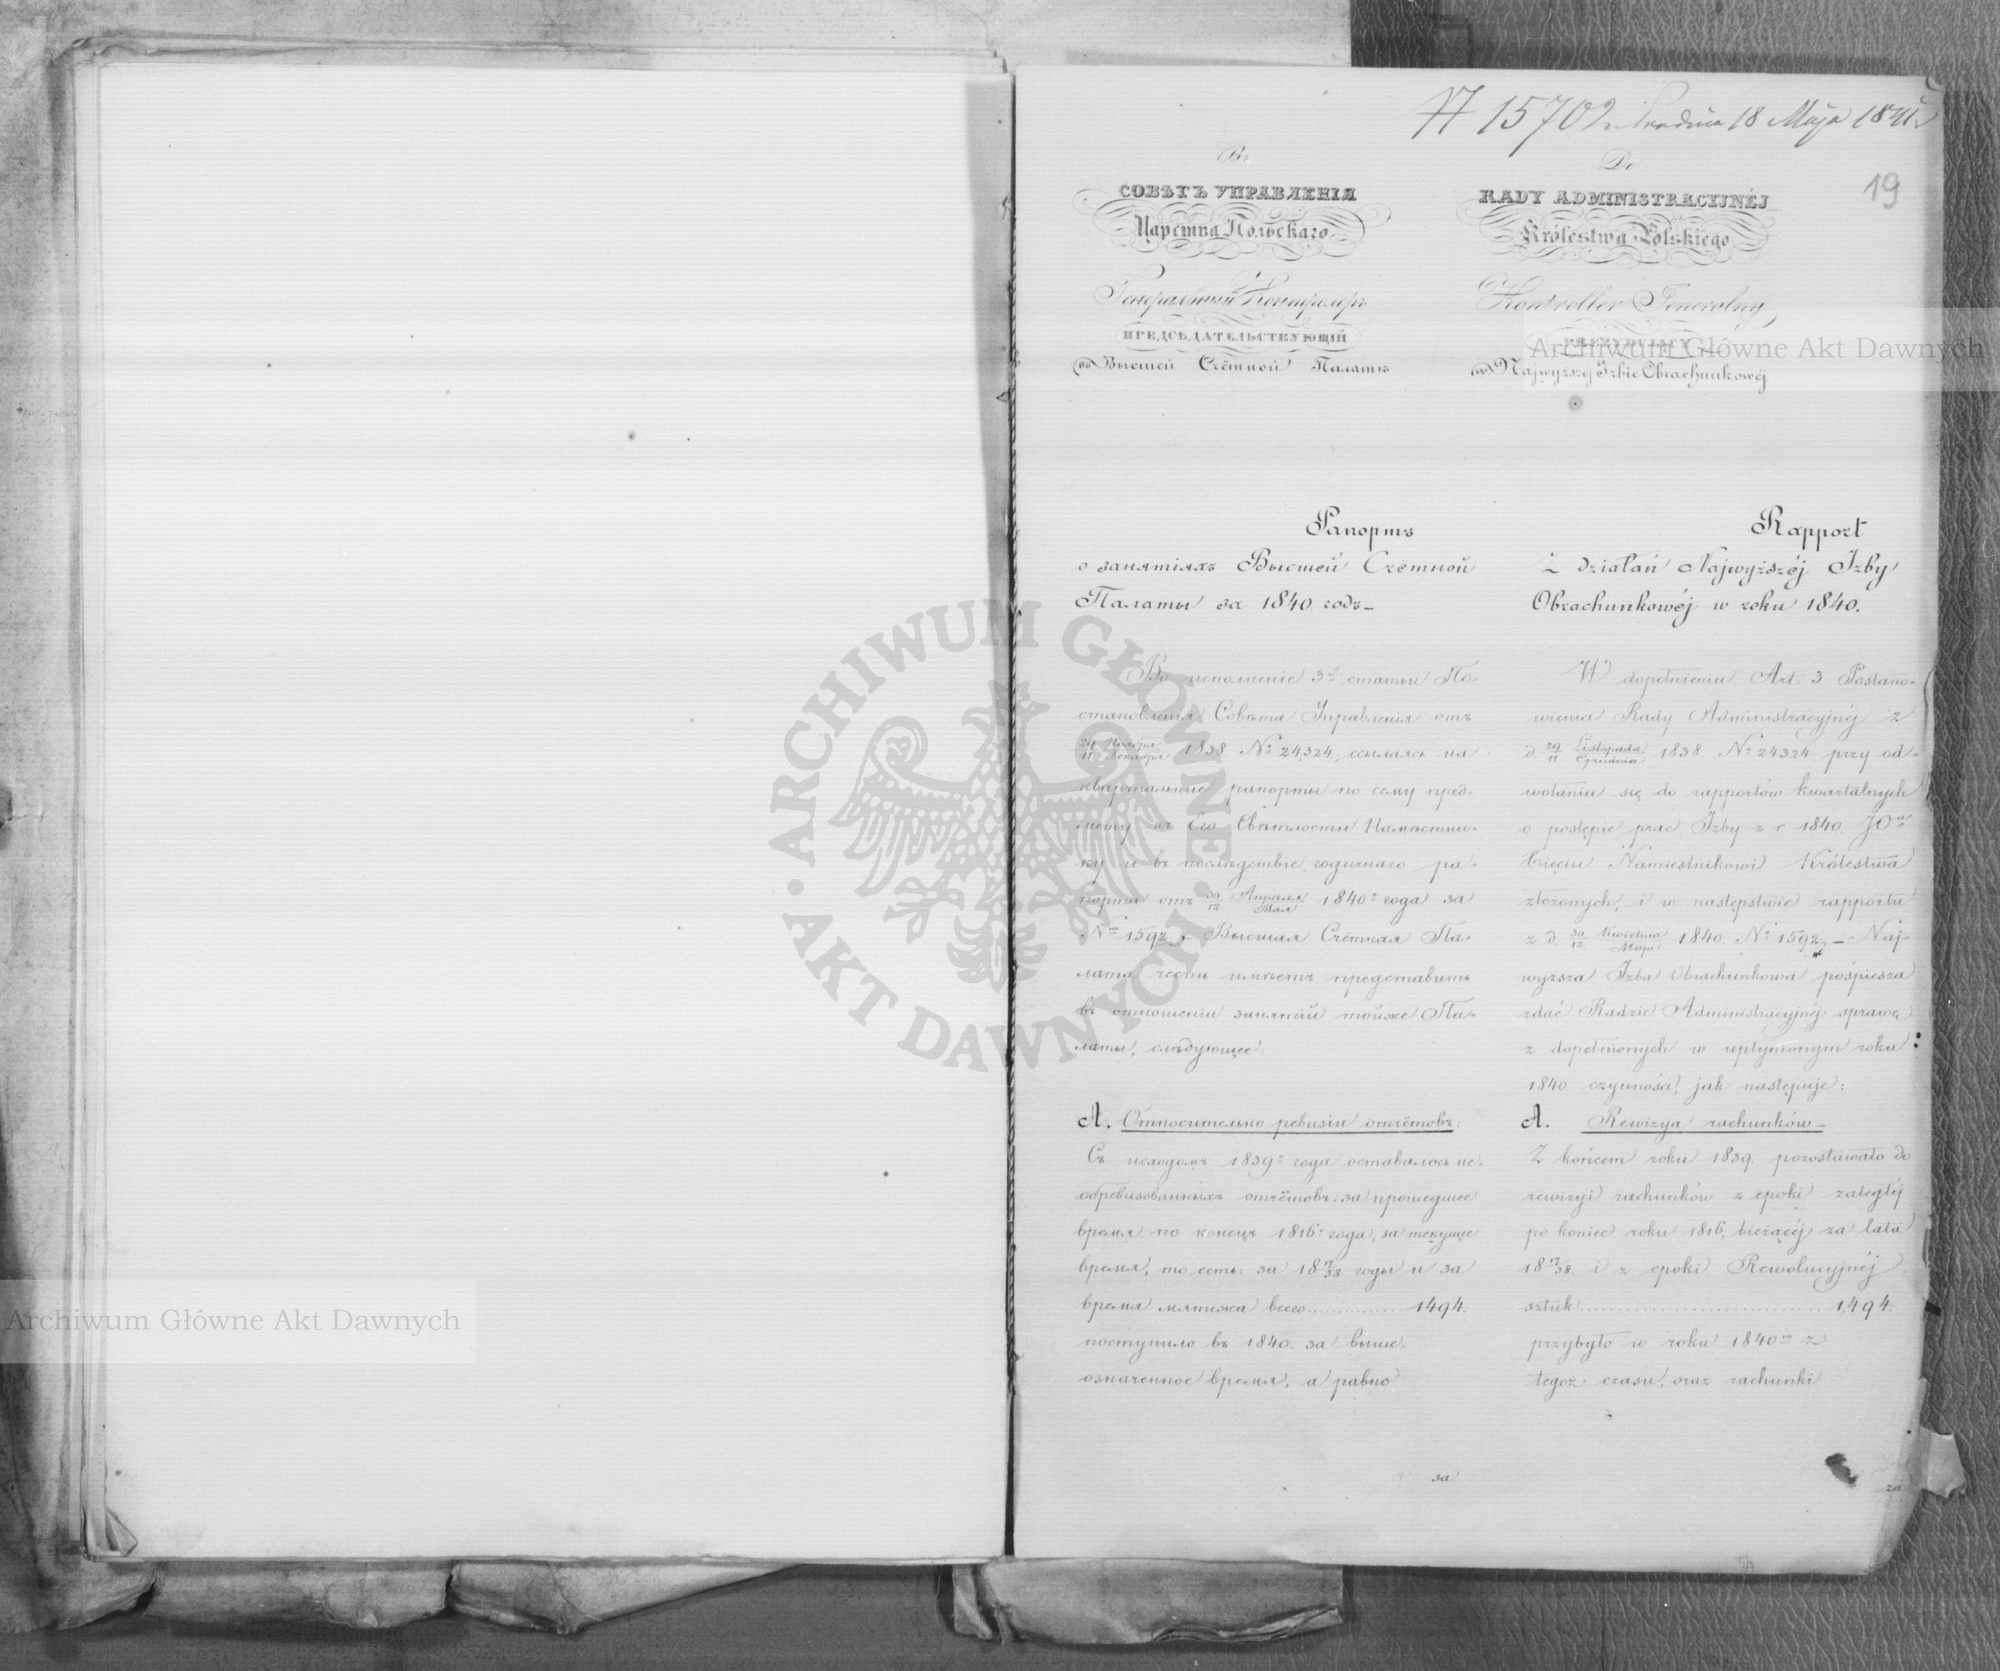 № 15702. Prodmia 18 Maja 1841
19
Въ
СОВѢТЪ УПРАВЛЕНІЯ
Царства Польскаго
Генеральный Контролеръ
ПРЕДСѢДАТЕЛЬСТВУЮЩІЙ
въ Высшей Счётной Палатѣ
Рапортъ
о занятіяхъ Высшей Счётной
Палаты за 1840 годъ_
Во исполненіе 3й статьи По-
становленія Совѣта Управленія отъ
29 Ноября / 11 Декабря 1838 № 24,324, ссылаясь на
квартальные рапорты по сему пред-
мету къ Его Свѣтлости Намѣстни-
ку и въ послѣдствіе годичнаго ра-
порта отъ 30 Апрѣля / 12 Мая 1840го года за
№ 1592, Высшая Счётная Па-
лата честь имѣетъ представить
въ отношеніи занятій тойже Па-
латы, слѣдующее.
А. Относительно ревизіи отчётовъ:
Съ исходомъ 1839го года оставалось не-
обревизованныхъ отчётовъ: за прошедшее
время по конецъ 1816го года, за текущее
время, то есть: за 18 17/38 годы и за
время мятежа всего .............. 1494.
поступило въ 1840. за выше-
означенное время, а равно
за
Do
RADY ADMINISTRACYJNÉJ
Królestwa Polskiego
Kontroller Jeneralny,
PREZYDUJĄCY
w Najwyższej Izbie Obrachunkowéj
Rapport
Z działań Najwyższéj Izby
Obrachunkowéj w roku 1840.
W dopełnieniu Art. 3 Postano-
wienia Rady Administracyjnéj z
d. 29 Listopada / 11 Grudnia 1838. № 24324 przy od-
wołaniu się do rapportów kwartalnych
o postępie prac Izby z r. 1840. JO
Xięciu Namiestnikowi Królestwa
złożonych, i w następstwie rapportu
z d. 30 Kwietnia / 12 Maja 1840. № 1592, – Naj-
wyższa Izba Obrachunkowa pośpiesza
zdać Radzie Administracyjnéj sprawę
z dopełnionych w upłynionym roku
1840. czynności, jak następuje:
A. Rewizya rachunków –
Z końcem roku 1839. pozostawało do
rewizyi rachunków z epoki zaległéj
po koniec roku 1816, bieżącéj za lata
18 17/38. i z epoki Rewolucyjnéj
sztuk .............................. 1,494.
przybyło w roku 1840m z
tegoż czasu, oraz rachunki
za
Archiwum Główne Akt Dawnych
Archiwum Główne Akt Dawnych
ARCHIWUM GŁÓWNE • AKT DAWNYCH •